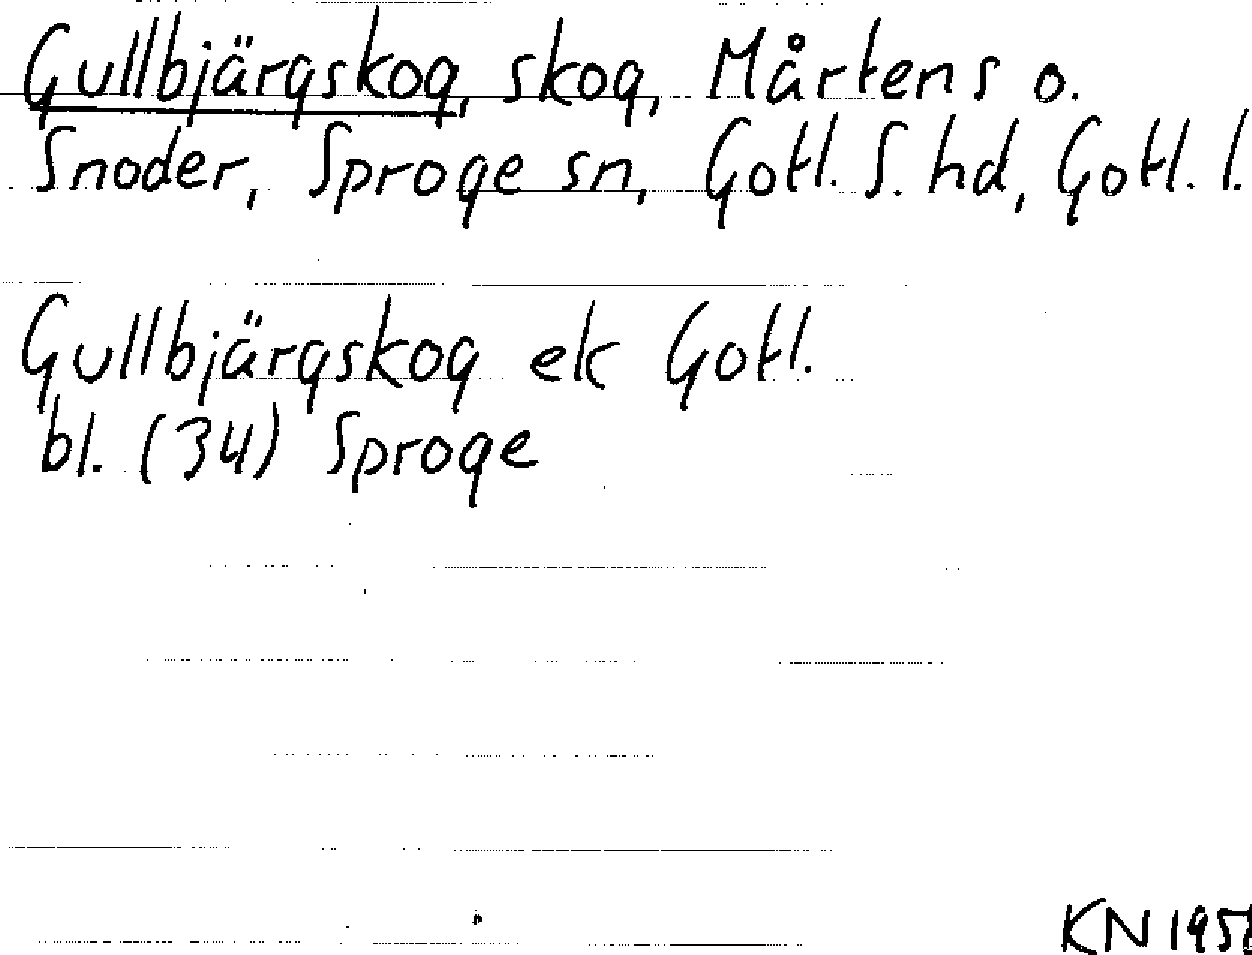 Gullbjärgskog, skog, Mårtens o.
Snoder, Sproge sn, Gotl. S. hd, Gotl. l.
Gullbjärgskog ek Gotl.
bl. (34) Sproge
KN 1951